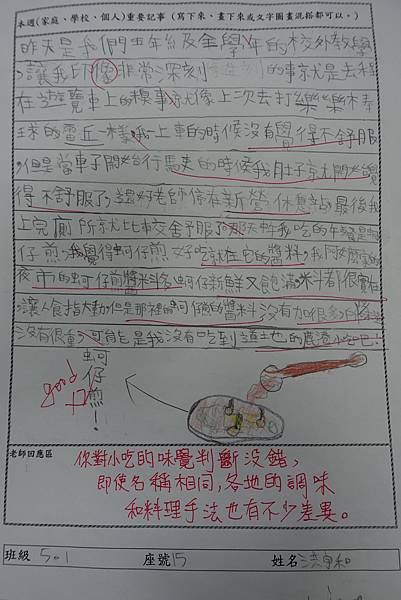 本週(家庭、學校、個人)重要記事(寫下來、畫下來或文字圖畫混搭都可以。)
昨天是我們五年級及全學年的校外教學
,讓我印像非常深刻的事就是去程
在遊覽車上的糗事就像上次去打樂樂棒
球的電近一樣,一上車的時候沒有覺得不舒服
,但是當車子開始行馬史的時候我肚子就開始覺
得不舒服了,還好老師停在新營休息站,最後我
上完廁所就比較舒服了,那天中午我吃的午餐是蚵
仔煎,我覺得蚵仔煎好吃就在它的醬料,我阿
夜市的蚵仔煎醬料多,蚵仔新鮮又飽滿,料都很實在
讓人食指大動,但是那裡的蚵仔煎的醬料沒有加很多
沒有很重,可能是我沒有吃到道地的鹿港小吃吧!
蚵仔煎!
good
老師回應區
你對小吃的味覺判斷沒錯,
即使名稱相同,各地的調味
和料理手法也有不少差異。
班級 501 座號 15 姓名 洪